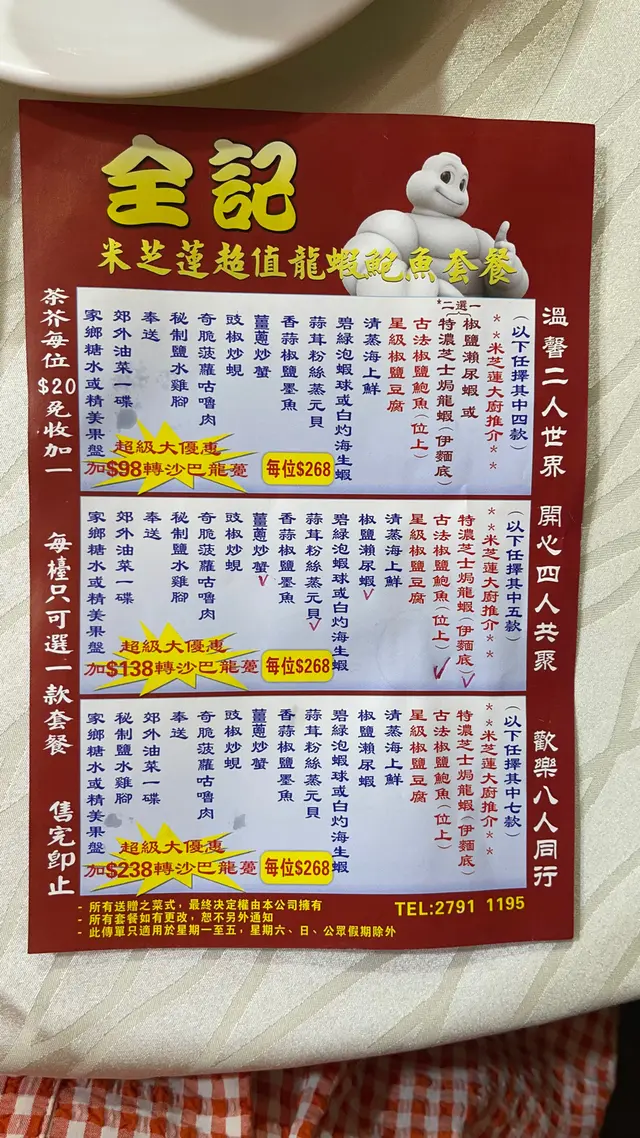 全記
米芝蓮超值龍蝦鮑魚套餐
溫馨二人世界
(以下任擇其中四款)
**米芝蓮大廚推介**
*二選一
椒鹽瀨尿蝦或
特濃芝士焗龍蝦(伊麵底)
古法椒鹽鮑魚(位上)
星級椒鹽豆腐
清蒸海上鮮
碧綠泡蝦球或白灼海生蝦
蒜茸粉絲蒸元貝
香蒜椒鹽墨魚
薑蔥炒蟹
豉椒炒蜆
奇脆菠蘿咕嚕肉
秘制鹽水雞腳
奉送
郊外油菜一碟
家鄉糖水或精美果盤
超級大優惠
加$98轉沙巴龍躉
每位$268
開心四人共聚
(以下任擇其中五款)
**米芝蓮大廚推介**
特濃芝士焗龍蝦(伊麵底)
古法椒鹽鮑魚(位上)
星級椒鹽豆腐
清蒸海上鮮
椒鹽瀨尿蝦
碧綠泡蝦球或白灼海生蝦
蒜茸粉絲蒸元貝
香蒜椒鹽墨魚
薑蔥炒蟹
豉椒炒蜆
奇脆菠蘿咕嚕肉
秘制鹽水雞腳
奉送
郊外油菜一碟
家鄉糖水或精美果盤
超級大優惠
加$138轉沙巴龍躉
每位$268
歡樂八人同行
(以下任擇其中七款)
**米芝蓮大廚推介**
特濃芝士焗龍蝦(伊麵底)
古法椒鹽鮑魚(位上)
星級椒鹽豆腐
清蒸海上鮮
椒鹽瀨尿蝦
碧綠泡蝦球或白灼海生蝦
蒜茸粉絲蒸元貝
香蒜椒鹽墨魚
薑蔥炒蟹
豉椒炒蜆
奇脆菠蘿咕嚕肉
奉送
郊外油菜一碟
秘制鹽水雞腳
家鄉糖水或精美果盤
超級大優惠
加$238轉沙巴龍躉
每位$268
茶芥每位$20免收加一
每檯只可選一款套餐
售完即止
- 所有送贈之菜式，最終決定權由本公司擁有
- 所有套餐如有更改，恕不另外通知
- 此傳單只適用於星期一至五，星期六、日、公眾假期除外
TEL:2791 1195